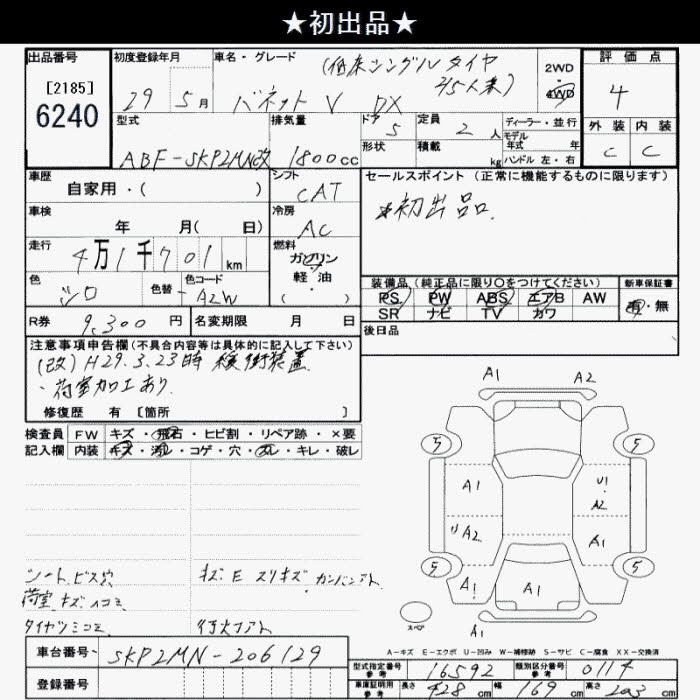 ★初出品★
出品番号 初度登録年月 車名・グレード (低床シングルタイヤ 2WD 評価点
[2185] 4/5人乗)
6240 29年 5月 バネットV DX 4WD 4
型式 排気量 ドア 5 定員 2人 ディーラー・並行 外装 内装
ABF-SKP2MN改 1800cc 形状 積載 kg モデル年式 年 C C
ハンドル 左・右
車歴 自家用・( ) シフト CAT セールスポイント(正常に機能するものに限ります)
車検 年 月( 日) 冷房 AC ★初出品
走行 4万1千701km 燃料 ガソリン
軽・油
( )
色 シロ 色替 色コード A2W 装備品(純正品に限り○をつけてください) 新車保証書
PS PW ABS エアB AW 有・無
SR ナビ TV カワ
R券 9,300円 名変期限 月 日 後日品
注意事項申告欄(不具合内容等は具体的に記入して下さい)
(改)H29.3.23時 緩衝装置
・荷室加工あり
修復歴 有 [箇所 ]
検査員 FW キズ・飛石・ヒビ割・リペア跡・×要
記入欄 内装 キズ・汚レ・コゲ・穴・スレ・キレ・破レ
A1 A2
5 5
A1 U1
A2
A2 A1
5 5
A1 A1 A1
スペア A1
シート.ビス穴 キズ E スリキズ カンバンアト
荷室.キズ.凹コミ
A-キズ E-エクボ U-凹み W-補修跡 S-サビ C-腐食 XX-交換済
車台番号 SKP2MN-206129
登録番号
型式指定番号 参考 16592 類別区分番号 参考 0114
車庫証明用 参考 長さ 428cm 幅 169cm 高さ 203cm